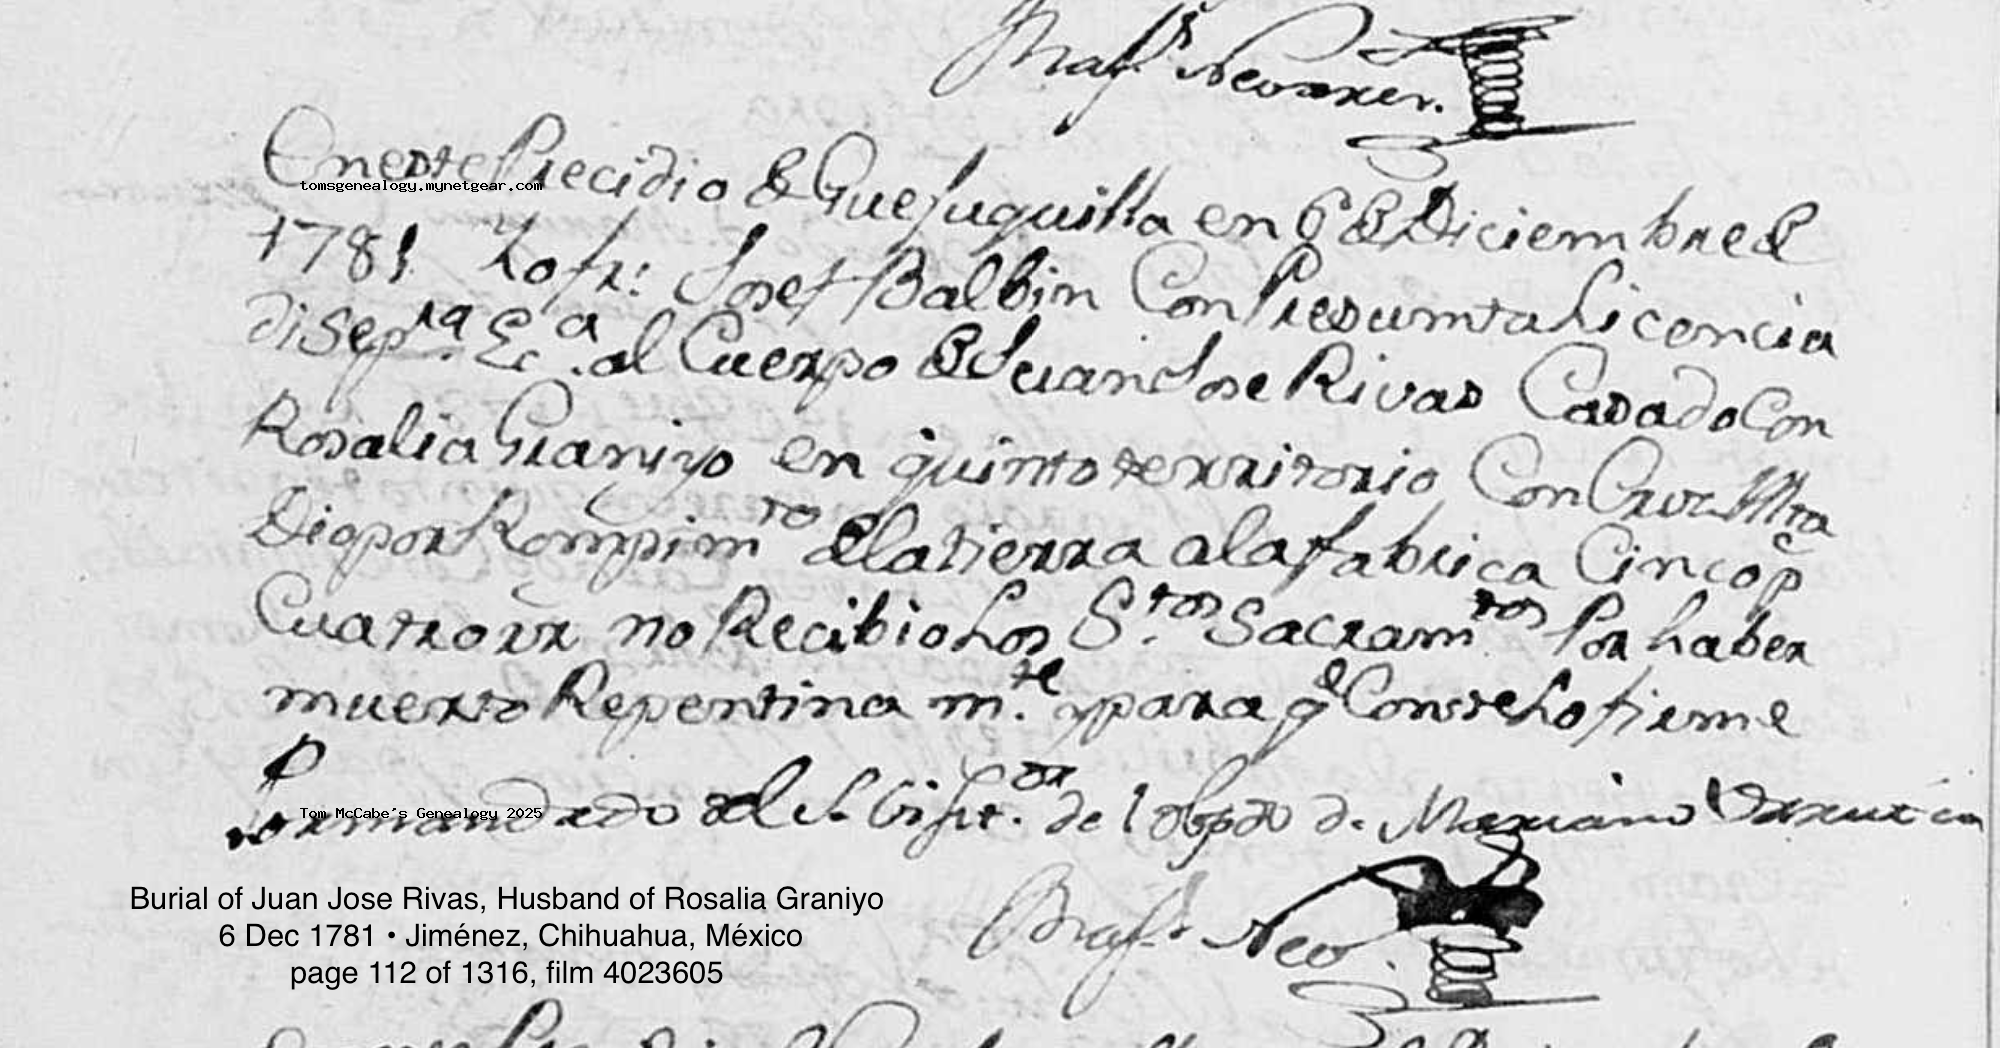 En este Precidio de Guejuquilla en 6 de Diciembre de
1781 Yo fr: Josef Balbin Con Presumta Licencia
di Sepra Eca. al Cuerpo de Juan Jose Rivas Casado Con
Rosalia Graniyo en quinto territorio Con Cruz
por Rompimto de la tierra a la fabrica Cinco ps
Cuatro no Recibio Los Stos Sacramtos Por haber
muerto Repentina mte y para qe Conste Lo firme
de Mariano
tomsgenealogy.mynetgear.com
Tom McCabe's Genealogy 2025
Burial of Juan Jose Rivas, Husband of Rosalia Graniyo
6 Dec 1781 • Jiménez, Chihuahua, México
page 112 of 1316, film 4023605